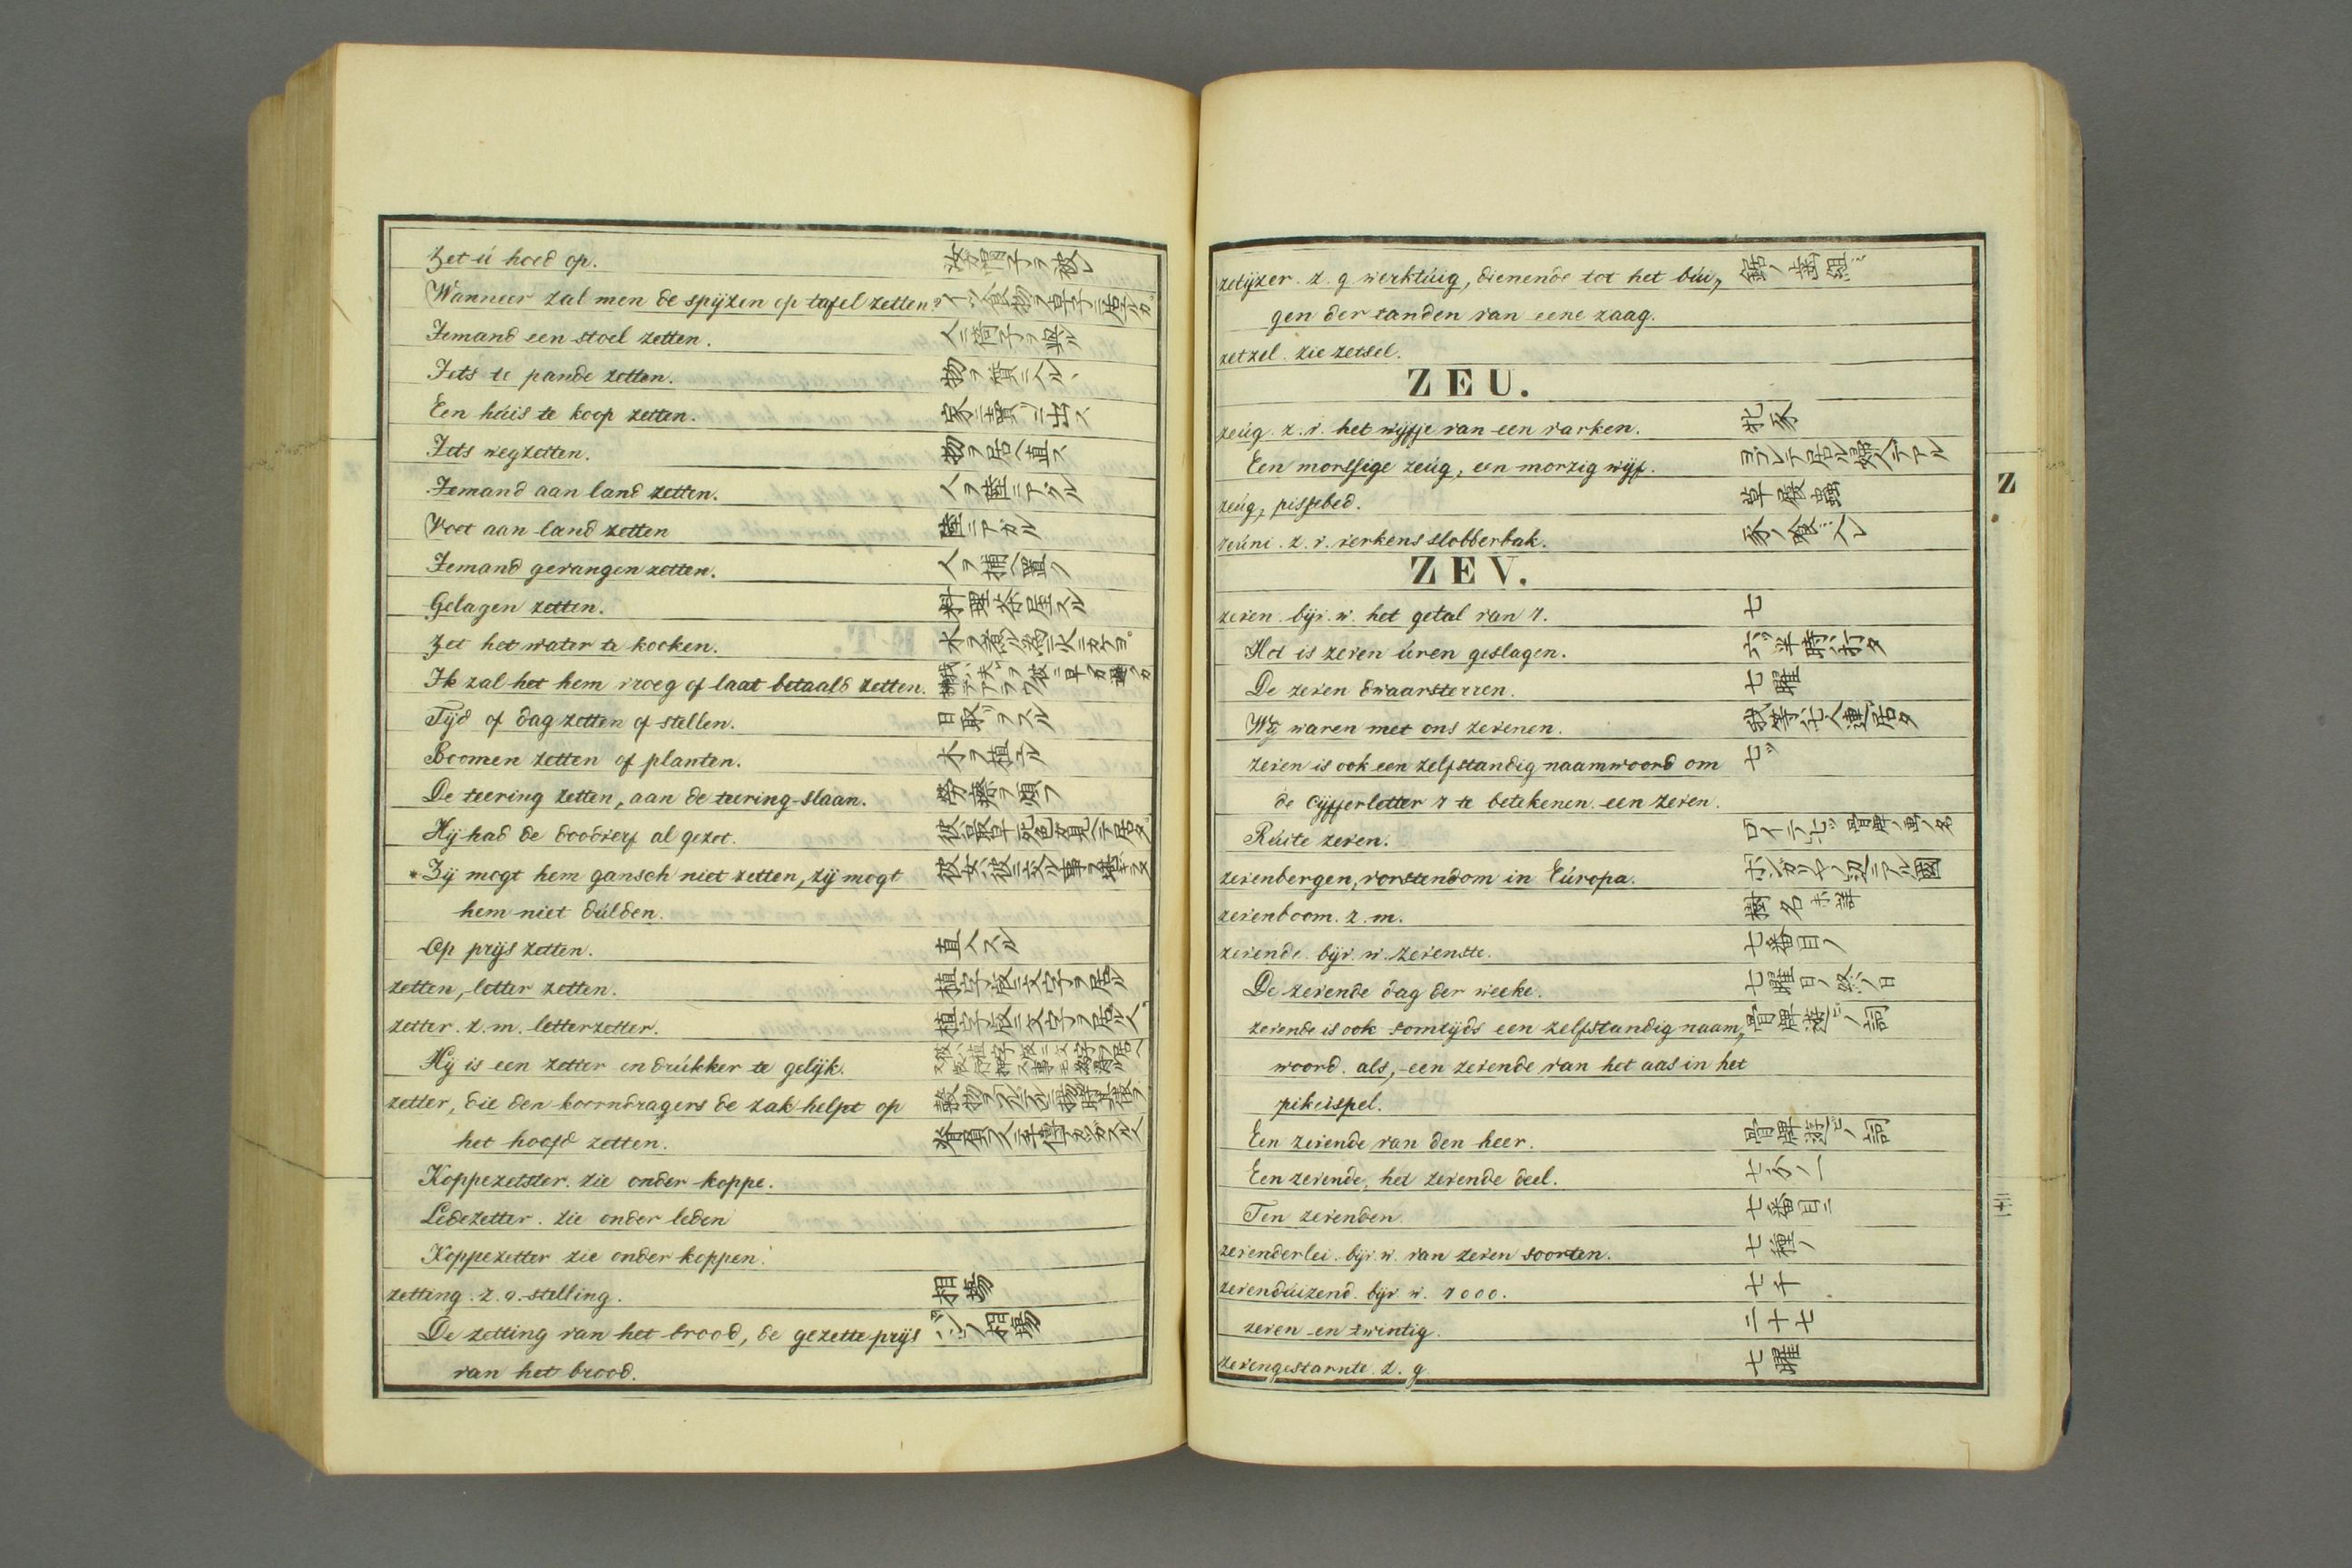 Zet ú hoed op.
汝帽子ヲ被レ
Wanneer zal men de spijzen op tafel zetten?
イツ食物ヲ卓子ニ居ルカ
Iemand een stoel zetten.
人ニ椅子ヲ
Iets te pande zetten.
物ヲ質ニ入ル
Een húis te koop zetten.
家ヲ賣ニ出ス
Iets wegzetten.
物ヲ居ヘ直ス
Iemand aan land zetten.
人ヲ陸ニアゲル
Voet aan land zetten
陸ニアガル
Iemand gevangen zetten.
人ヲ捕ヘ置ク
Gelagen zetten.
料理茶屋スル
Zet het water te kooken.
水ヲ
Ik zal het hem vroeg of laat betaald zetten.
Tijd of dag zetten of stellen.
日取ヲスル
Boomen zetten of planten.
木ヲ植ル
De teering zetten, aan de teering slaan.
勞療ヲ煩フ
Hij had de doodverf al gezet.
彼ハ最早死色ガ見ヘテ居タ
Zij mogt hem gansch niet zetten, zij mogt
hem niet dúlden.
彼女ハ彼ニ
Op prijs zetten.
直入スル
zetten, letter zetten.
植字版ニ文字ヲ居ル
zetter. z. m. letterzetter.
植字版ニ文字ヲ居ル人
Hij is een zetter en drúkker te gelijk.
zetter, die den koorndragers de zak helpt op
het hoofd zetten.
Koppezetster. zie onder koppe.
Ledezetter. zie onder leden
Koppezetter zie onder koppen.
zetting. z. v. stelling.
相場
De zetting van het brood, de gezette prijs
van het brood.
パンノ相場
zetijzer. z. g. werktúig, dienende tot het búi,
gen der tanden van eene zaag.
鋸ノ歯組ミ
zetzel. zie zetsel.
ZEU.
zeúg. z. v. het wijfje van een varken.
牝豕
Een morssige zeúg, een morzig wijf.
ヨゴレテ居ル婦人テアル
zeúg, pissebed.
草履蟲
zeúni. z. v. verkens slobberbak.
豕ノ喰ミ入レ
ZEV.
zeven. bijv. w. het getal van 7.
七
Het is zeven úren geslagen.
六ツ半時ヲ打タ
De zeven dwaarsterren.
七曜
Wij waren met ons zevenen.
我等ハ七人連テ居タ
zeven is ook een zelfstandig naamwoord om
de Cijfferletter 7 te betekenen. een zeven.
七ツ
Rúite zeven.
ロイテノ七ツ骨牌ノ畫ノ名
zevenbergen, vorstendom in Eúropa.
ホンガリヤノ辺ニアル國
zevenboom. z. m.
樹名未詳
zevende. bijv. w. zevenste.
七番目ノ
De zevende dag der weeke.
七曜日ノ終ノ日
zevende is ook somtijds een zelfstandig naam,
woord. als, een zevende van het aas in het
pikeispel.
骨牌遊ビノ詞
Een zevende van den heer.
骨牌遊ビノ詞
Een zevende, het zevende deel.
七分ノ一
Ten zevenden
七番目ニ
zevenderlei. bijv. w. van zeven soorten.
七種ノ
zevendúizend. bijv. w. 7000.
七千
zeven en twintig.
二十七
zevengestarnte. z. g.
七曜
Z